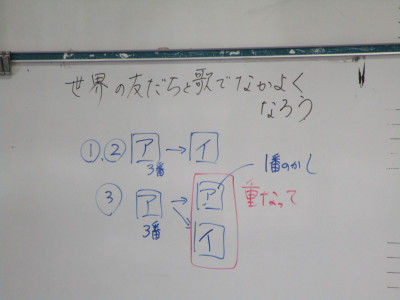 世界の友だちと歌でなかよく
なろう
①,② ア → イ
3番
1番のかし
③ ア → ア
重なって
3番 イ